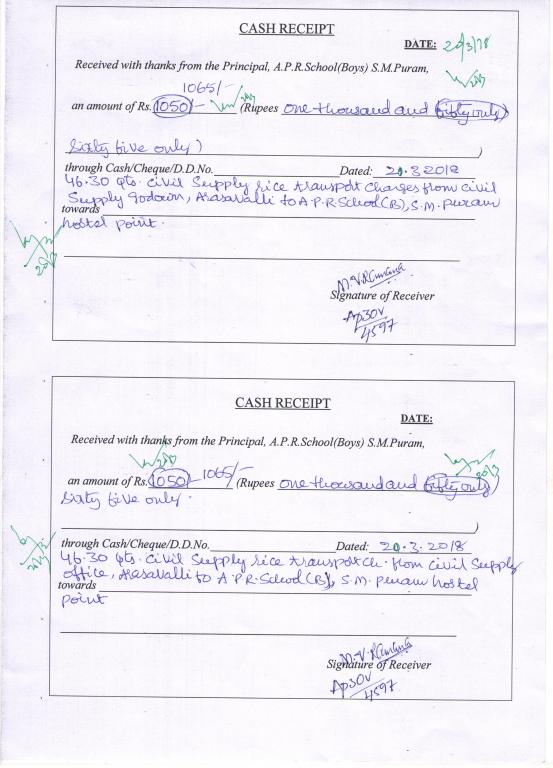 CASH RECEIPT
DATE: 20/3/18
Received with thanks from the Principal, A.P.R.School(Boys) S.M.Puram,
1065/-
an amount of Rs. 1050/- (Rupees one thousand and fifty only)
Sixty five only )
through Cash/Cheque/D.D.No. Dated: 20.3.2018
46.30 qts. civil supply rice transport charges from civil
supply godown, Arasavalli to A.P.R.School(B), S.M. puram
towards
hostel point.
M.V.Ramana
Signature of Receiver
AP30V
4597
CASH RECEIPT
DATE:
Received with thanks from the Principal, A.P.R.School(Boys) S.M.Puram,
an amount of Rs. 1050 1065/- (Rupees one thousand and fifty only)
Sixty five only.
)
through Cash/Cheque/D.D.No. Dated: 20.3.2018
46.30 qts. civil supply rice transport ch. from civil supply
office, Arasavalli to A.P.R.School(B), S.M. puram hostel
towards
point
M.V.Ramana
Signature of Receiver
AP30V
4597